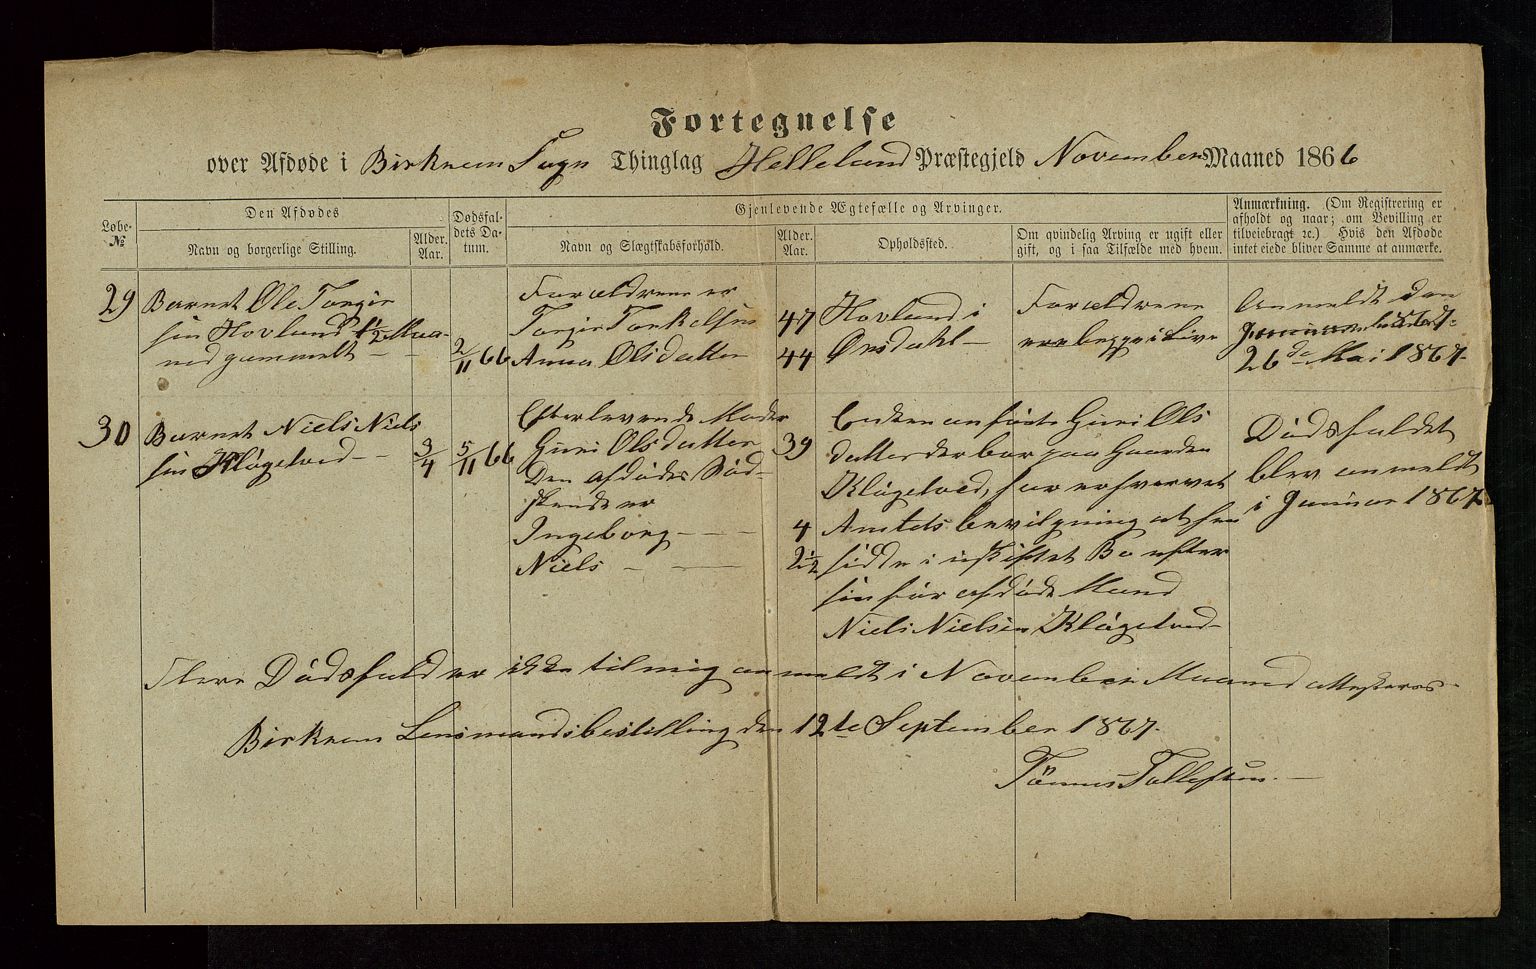 Fortegnelse
over Afdøde i Birkrem Sogn Thinglag Helleland Præstegjeld November Maaned 1866
Løbe-
№
Den Afdødes
Navn og borgerlige Stilling.
Alder.
Aar.
Dødsfal-
dets Da-
tum.
Gjenlevende Ægtefælle og Arvinger.
Navn og Slægtskabsforhold.
Alder.
Aar.
Opholdssted.
Om qvindelig Arving er ugift eller
gift, og i saa Tilfælde med hvem.
Anmærkning. (Om Registrering er
afholdt og naar; om Bevilling er
tilveiebragt ꝛc.) Hvis den Afdøde
intet eiede bliver Samme at anmærke.
29
Barnet Ole Torgir
sen Hovland 1½ Maa-
ned gammelt —
2/11 66
Forældrene er
Torgir Torkelsen
Anna Olsdatter
47
44
Hovland i
Ørsdahl —
Forældrene
ere begge i Live
Anmeldt den
26de Mai 1867.
30
Barnet Niels Niels
sen Kløgetved —
3/4
5/11 66
Efterlevende Moder
Guri Olsdatter
Den afdødes Sød-
skende er
Ingeborg — —
Niels — —
39
4
2½
Enken anførte Guri Ols
datter der bor paa Gaarden
Kløgetved, har erhvervet
Amtets bevilgning at hen
sidde i uskiftet Bo efter
sin før afdøde Mand
Niels Nielsen Kløgetved —
Dødsfaldet
blev anmeldt
i Januar 1867
Flere Dødsfald er ikke til mig anmeldt i November Maaned attesteres —
Birkrem Lensmandsbestilling den 12te September 1867.
Tönnes Tollefsen. —